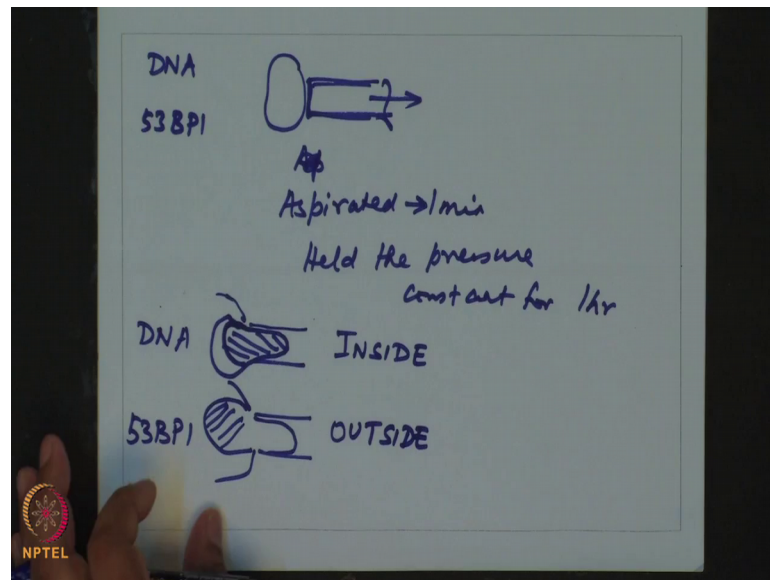 DNA
53BP1
Aspirated → 1 min
Held the pressure
constant for 1hr
DNA INSIDE
53BP1 OUTSIDE
NPTEL